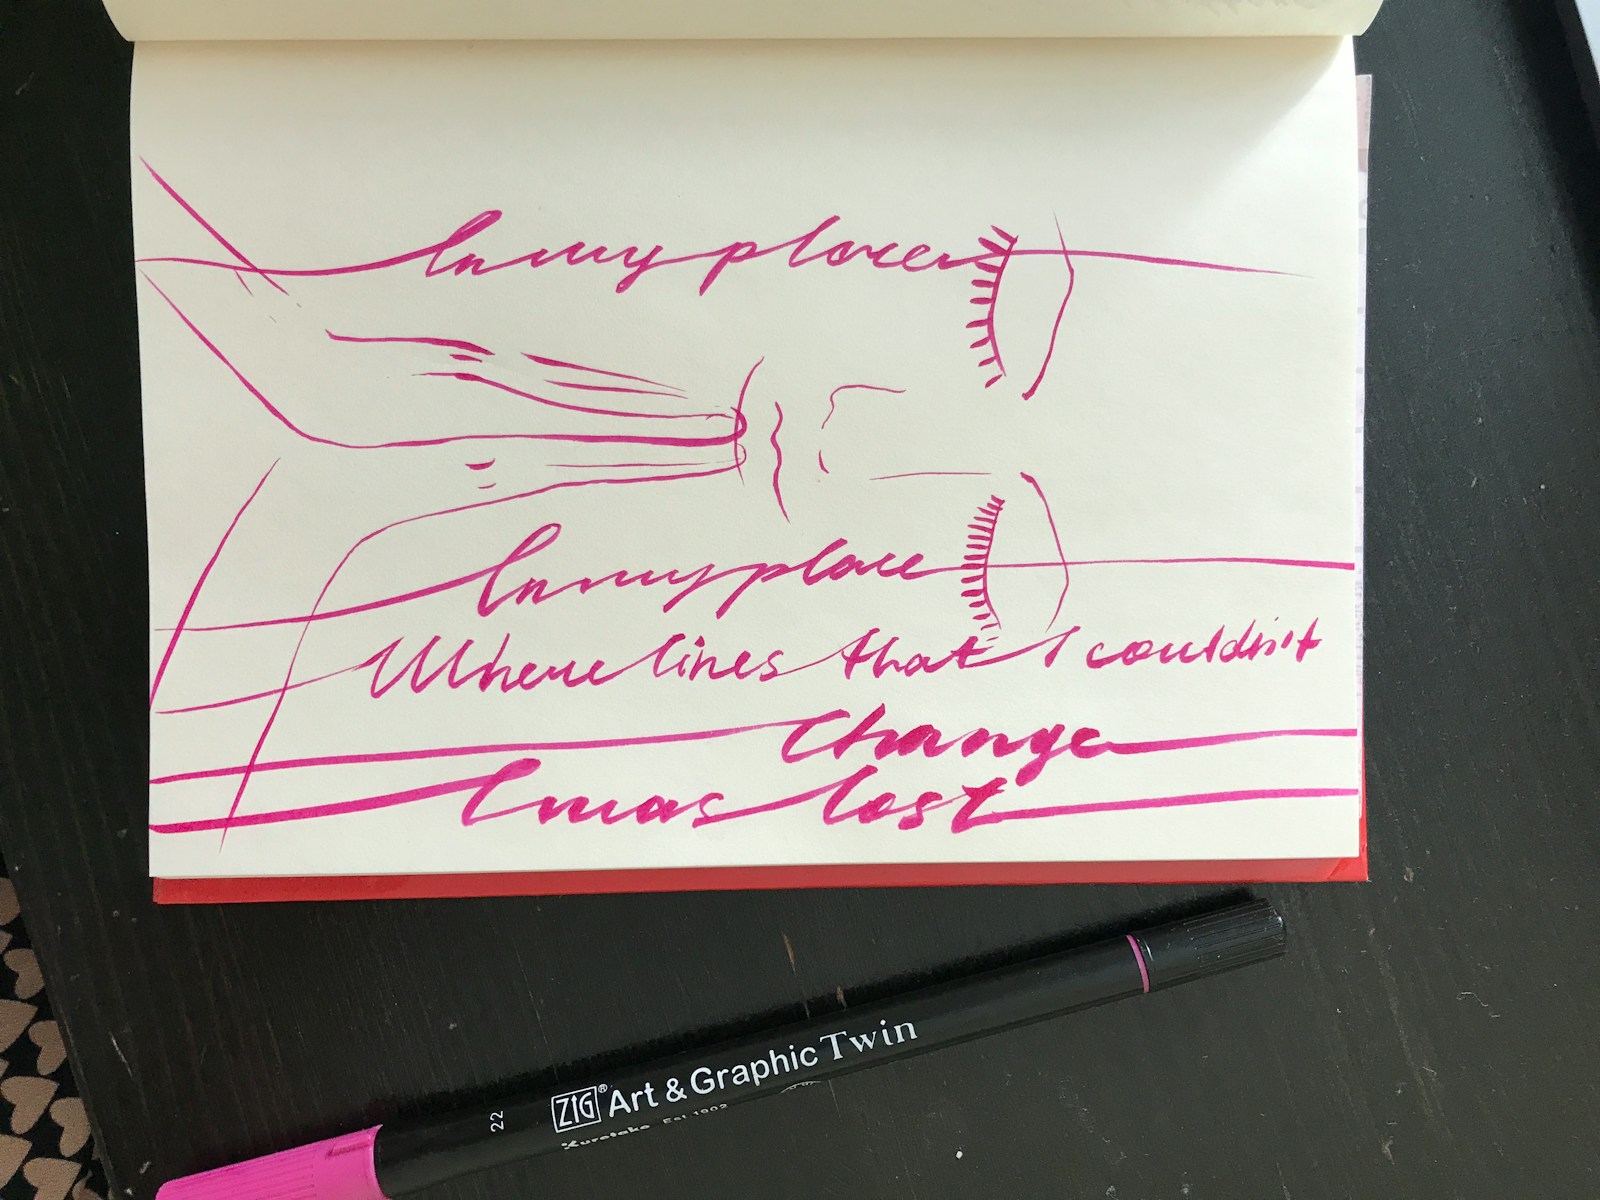 In my place
In my place
Where lines that I couldn't
Change
I was lost
ZIG® Art & Graphic Twin
Kuretake Est 1902
22